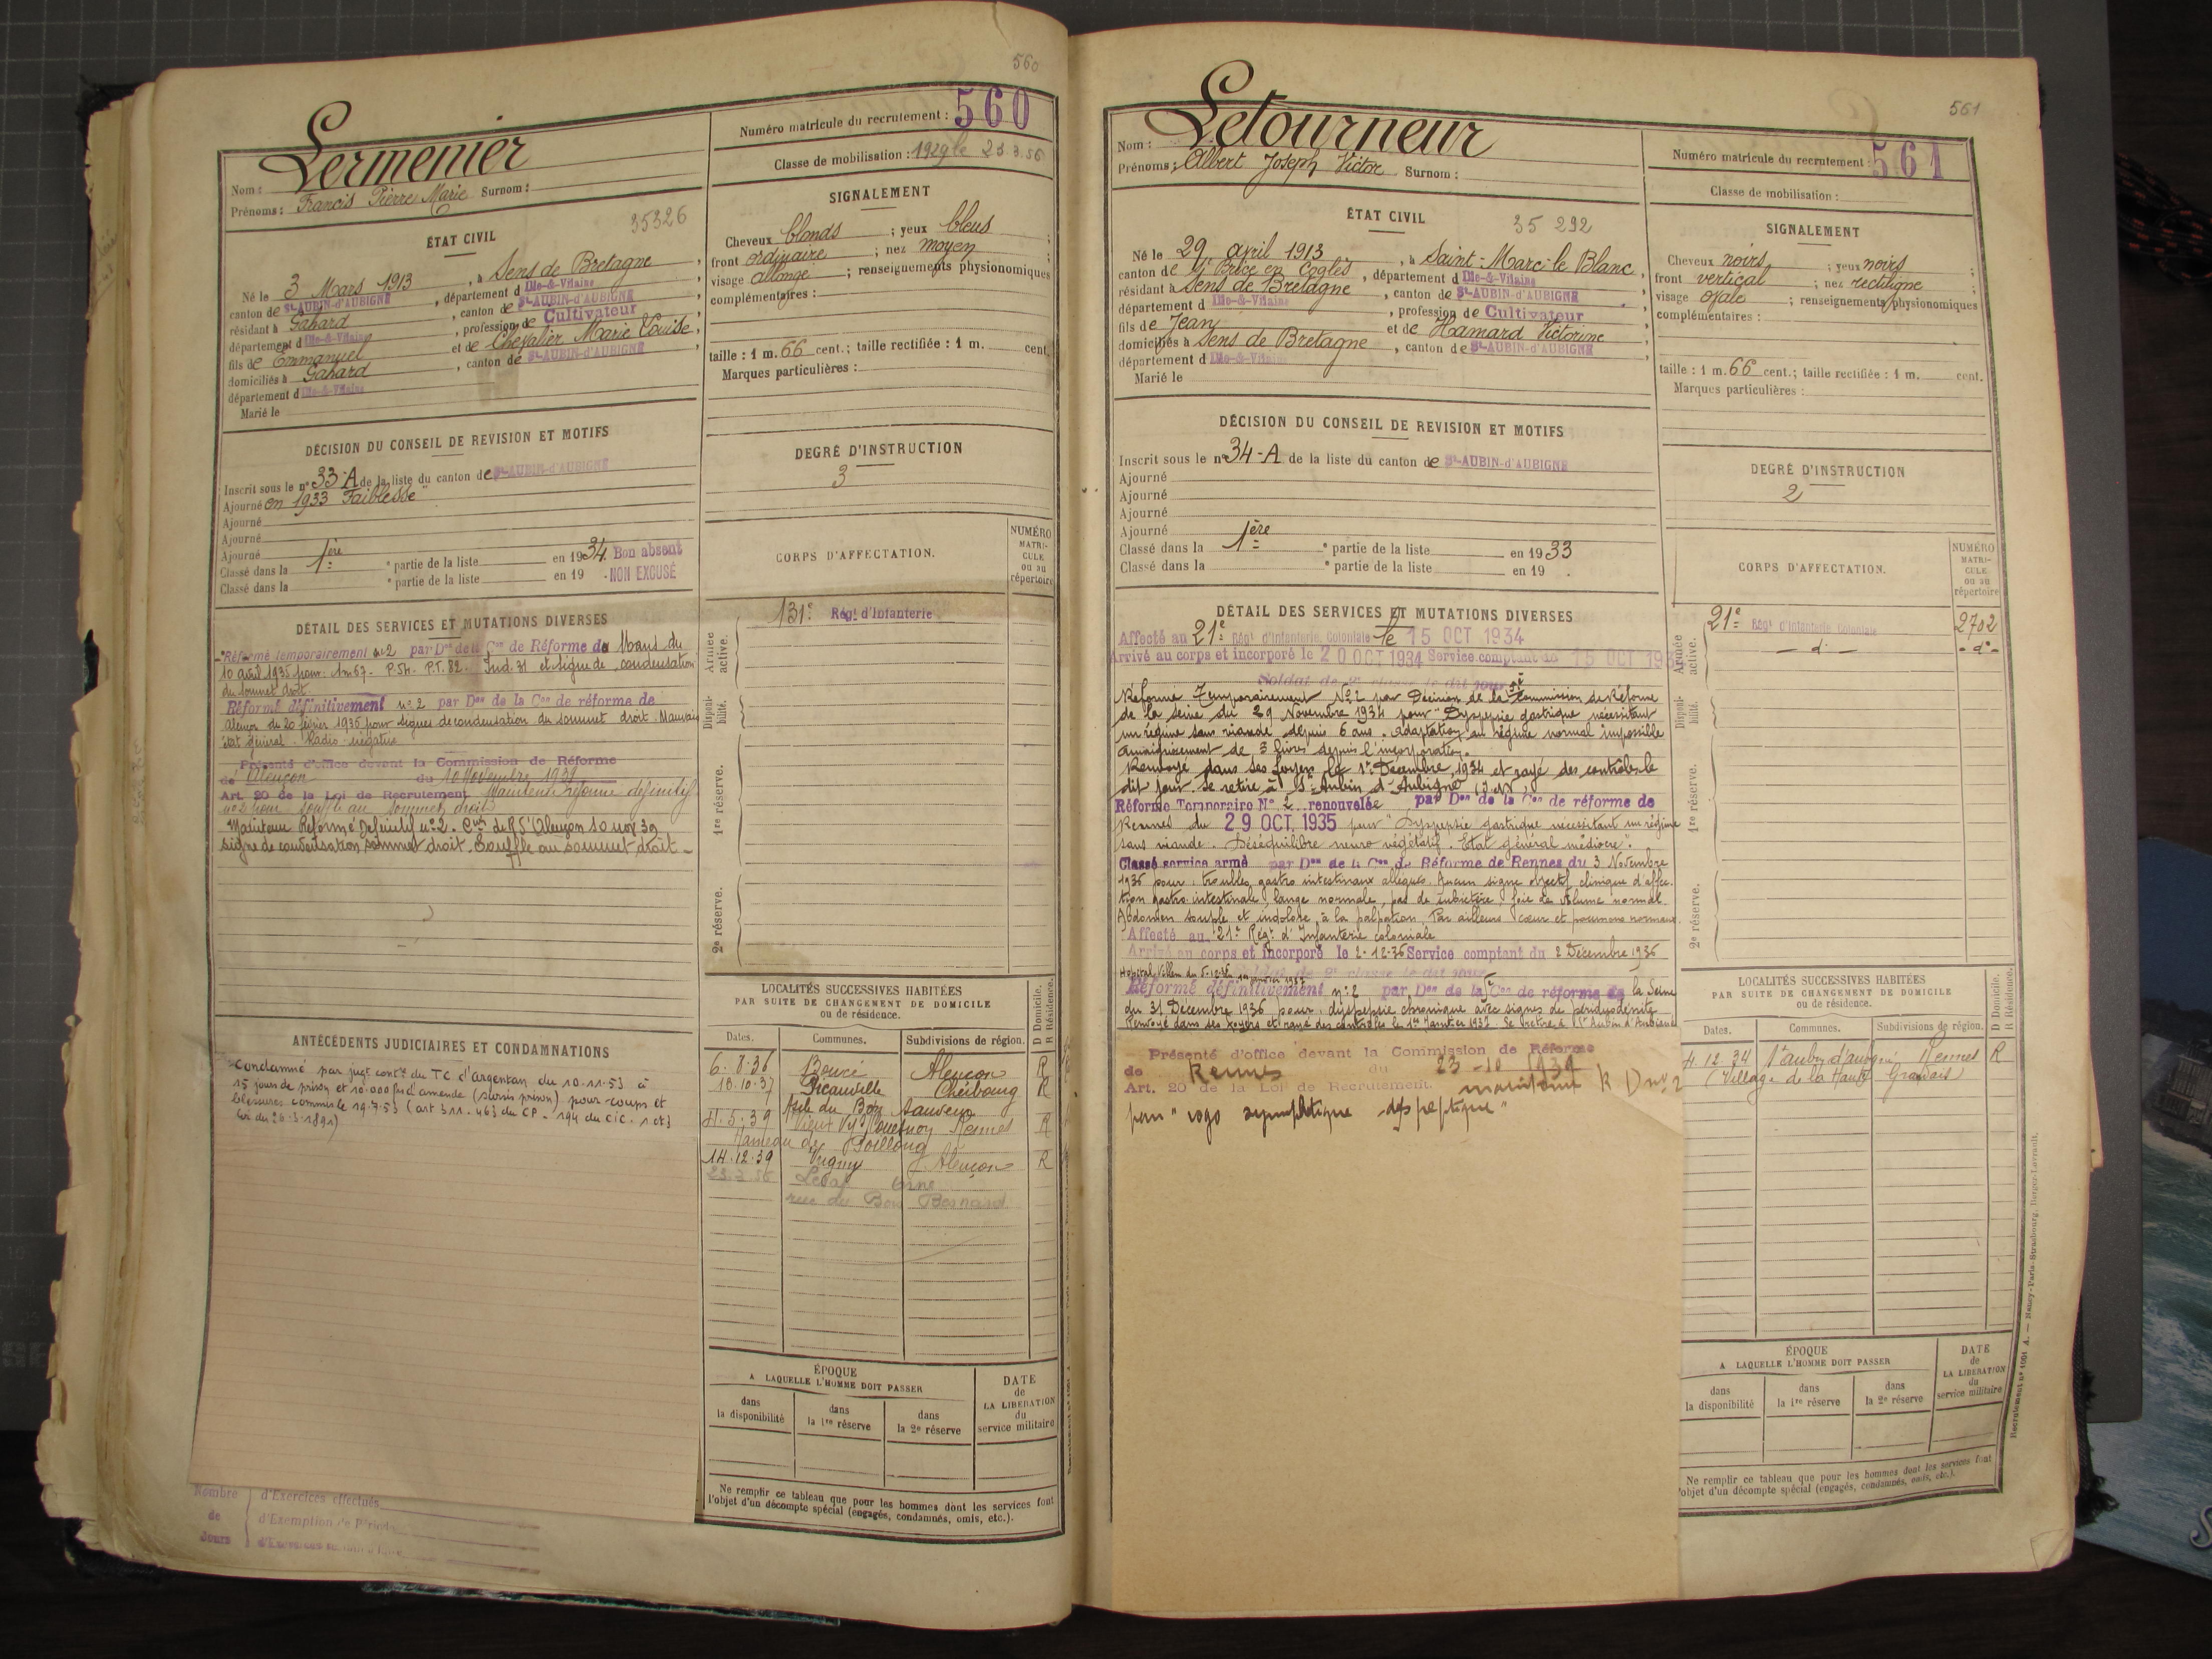 560
Lermenier
Nom :
Prénoms : Francis Pierre Marie Surnom :
Numéro matricule du recrutement : 560
Classe de mobilisation : 1929 le 23.3.56
ÉTAT CIVIL
35326
Né le 3 Mars 1913, à Sens de Bretagne,
canton de St-AUBIN-d'AUBIGNE, département d Ille-&-Vilaine
résidant à Gahard, canton de St-AUBIN-d'AUBIGNE,
département d Ille-&-Vilaine, profession de Cultivateur
fils de Emmanuel et de Chevalier Marie Louise,
domiciliés à Gahard, canton de St-AUBIN-d'AUBIGNE,
département d Ille-&-Vilaine
Marié le
SIGNALEMENT
Cheveux blonds ; yeux bleus ;
front ordinaire ; nez moyen ;
visage allongé ; renseignements physionomiques
complémentaires :
taille : 1 m. 66 cent.; taille rectifiée : 1 m. cent.
Marques particulières :
DÉCISION DU CONSEIL DE REVISION ET MOTIFS
Inscrit sous le n° 33-A de la liste du canton de St-AUBIN-d'AUBIGNE
Ajourné en 1933 "Faiblesse"
Ajourné
Ajourné
Ajourné
Classé dans la 1ère partie de la liste en 1934. Bon absent
Classé dans la partie de la liste en 19 . NON EXCUSÉ
DEGRÉ D'INSTRUCTION
3
CORPS D'AFFECTATION.
NUMÉRO MATRI-CULE ou au répertoire
131e Régt d'Infanterie
Armée active.
Disponi-bilité.
1re réserve.
2e réserve.
DÉTAIL DES SERVICES ET MUTATIONS DIVERSES
Réformé temporairement n° 2 par Don de la Con de Réforme du Mans du
10 avril 1935 pour : 1m67 - P.54. P.T. 82. Ind. 31 et signe de condensation
du sommet droit.
Réformé définitivement n° 2 par Don de la Con de réforme de
Alençon du 20 février 1936 pour signes de condensation du sommet droit. Mauvais
état général. Radio négative
Présenté d'office devant la Commission de Réforme
de Alençon du 10 Novembre 1939
Art. 20 de la Loi de Recrutement Maintenu réforme définitif
n° 2 pour souffle au sommet droit
Maintenu Réformé Définitif n° 2. Con de R St Alençon 10 nov 39
signe de condensation sommet droit. Souffle au sommet droit -
ANTÉCÉDENTS JUDICIAIRES ET CONDAMNATIONS
Condamné par jugt contre du TC d'Argentan du 10.11.53 à
15 jours de prison et 10.000 frs d'amende (sursis prison) pour coups et
blessures commis le 19.7.53 (art 311 - 463 du CP - 194 du CIC. 1 et 3
loi du 26.3.1891)
Nombre de Jours
d'Exercices effectués
d'Exemption de Période
LOCALITÉS SUCCESSIVES HABITÉES
PAR SUITE DE CHANGEMENT DE DOMICILE
ou de résidence.
D Domicile. R Résidence.
Dates. Communes. Subdivisions de région.
6.8.36 Boucé Alençon R
18.10.37 Picauville Cherbourg R
Asile du Bon Sauveur
4.5.39 Vieux Vy s/ Couesnon Rennes R
Hameau de
14.12.39 Alençon R
23.3.56 Orne
rue du
ÉPOQUE
A LAQUELLE L'HOMME DOIT PASSER
dans la disponibilité
dans la 1re réserve
dans la 2e réserve
DATE de LA LIBÉRATION du service militaire
Ne remplir ce tableau que pour les hommes dont les services font
l'objet d'un décompte spécial (engagés, condamnés, omis, etc.).
561
Letourneur
Nom :
Prénoms : Albert Joseph Victor Surnom :
Numéro matricule du recrutement : 561
Classe de mobilisation :
ÉTAT CIVIL
35 292
Né le 29 avril 1913, à Saint-Marc-le Blanc,
canton de St Brice en Coglès, département d Ille-&-Vilaine
résidant à Sens de Bretagne, canton de St-AUBIN-d'AUBIGNE
département d Ille-&-Vilaine, profession de Cultivateur
fils de Jean et de Hamard Victorine
domiciliés à Sens de Bretagne, canton de St-AUBIN-d'AUBIGNE
département d Ille-&-Vilaine
Marié le
SIGNALEMENT
Cheveux noirs ; yeux noirs ;
front vertical ; nez rectiligne ;
visage ovale ; renseignements physionomiques
complémentaires :
taille : 1 m. 66 cent.; taille rectifiée : 1 m. cent.
Marques particulières :
DÉCISION DU CONSEIL DE REVISION ET MOTIFS
Inscrit sous le n° 34-A de la liste du canton de St-AUBIN-d'AUBIGNE
Ajourné
Ajourné
Ajourné
Ajourné
Classé dans la 1ère partie de la liste en 1933
Classé dans la partie de la liste en 19 .
DEGRÉ D'INSTRUCTION
2
CORPS D'AFFECTATION.
NUMÉRO MATRI-CULE ou au répertoire
21e Régt d'Infanterie Coloniale 2702
- d° - - d° -
Armée active.
Disponi-bilité.
1re réserve.
2e réserve.
DÉTAIL DES SERVICES ET MUTATIONS DIVERSES
Affecté au 21e Régt d'Infanterie Coloniale le 15 OCT 1934
Arrivé au corps et incorporé le 20 OCT 1934 Service comptant du 15 OCT 1934
Soldat de 2e classe le dit jour
Réformé Temporairement N° 2 par Décision de la 5e Commission de Réforme
de la Seine du 29 Novembre 1934 pour "Dyspepsie gastrique nécessitant
un régime sans viande depuis 6 ans. Adaptation au régime normal impossible
amaigrissement de 3 livres depuis l'incorporation.
Renvoyé dans ses foyers le 1er Décembre 1934 et rayé des contrôles le
dit jour se retire à St Aubin d'Aubigné (I et V)
Réforme Temporaire N° 2 renouvelée par Don de la Con de réforme de
Rennes du 29 OCT. 1935 pour "Dyspepsie gastrique nécessitant un régime
sans viande. Déséquilibre neuro végétatif. Etat général médiocre".
Classé service armé par Don de la Con de Réforme de Rennes du 3 Novembre
1936 pour : troubles gastro intestinaux allégués. Aucun signe objectif clinique d'affec-
tion gastro-intestinale, langue normale, pas de subictère, foie de volume normal.
Abdomen souple et indolore à la palpation. Par ailleurs cœur et poumons normaux.
Affecté au 21e Régt d'Infanterie coloniale
Arrivé au corps et incorporé le 2-12-36 Service comptant du 2 Décembre 1936
Soldat de 2e classe le dit jour
Réformé définitivement n° 2 par Don de la 5e Con de réforme de la Seine
du 31 Décembre 1936 pour : dyspepsie chronique avec signes de périduodénite
Renvoyé dans ses foyers et rayé des contrôles le 1er Janvier 1937. Se retire à St Aubin d'Aubigné
Présenté d'office devant la Commission de Réforme
de Rennes du 23-10 1939
Art. 20 de la Loi de Recrutement. maintenu R D n° 2
pour
LOCALITÉS SUCCESSIVES HABITÉES
PAR SUITE DE CHANGEMENT DE DOMICILE
ou de résidence.
D Domicile. R Résidence.
Dates. Communes. Subdivisions de région.
4.12.34 St aubin d'aubigné Rennes R
(Village de la Haute Gravais)
ÉPOQUE
A LAQUELLE L'HOMME DOIT PASSER
dans la disponibilité
dans la 1re réserve
dans la 2e réserve
DATE de LA LIBÉRATION du service militaire
Ne remplir ce tableau que pour les hommes dont les services font
l'objet d'un décompte spécial (engagés, condamnés, omis, etc.).
Recrutement n° 1001 A. — Nancy-Paris-Strasbourg, Berger-Levrault.